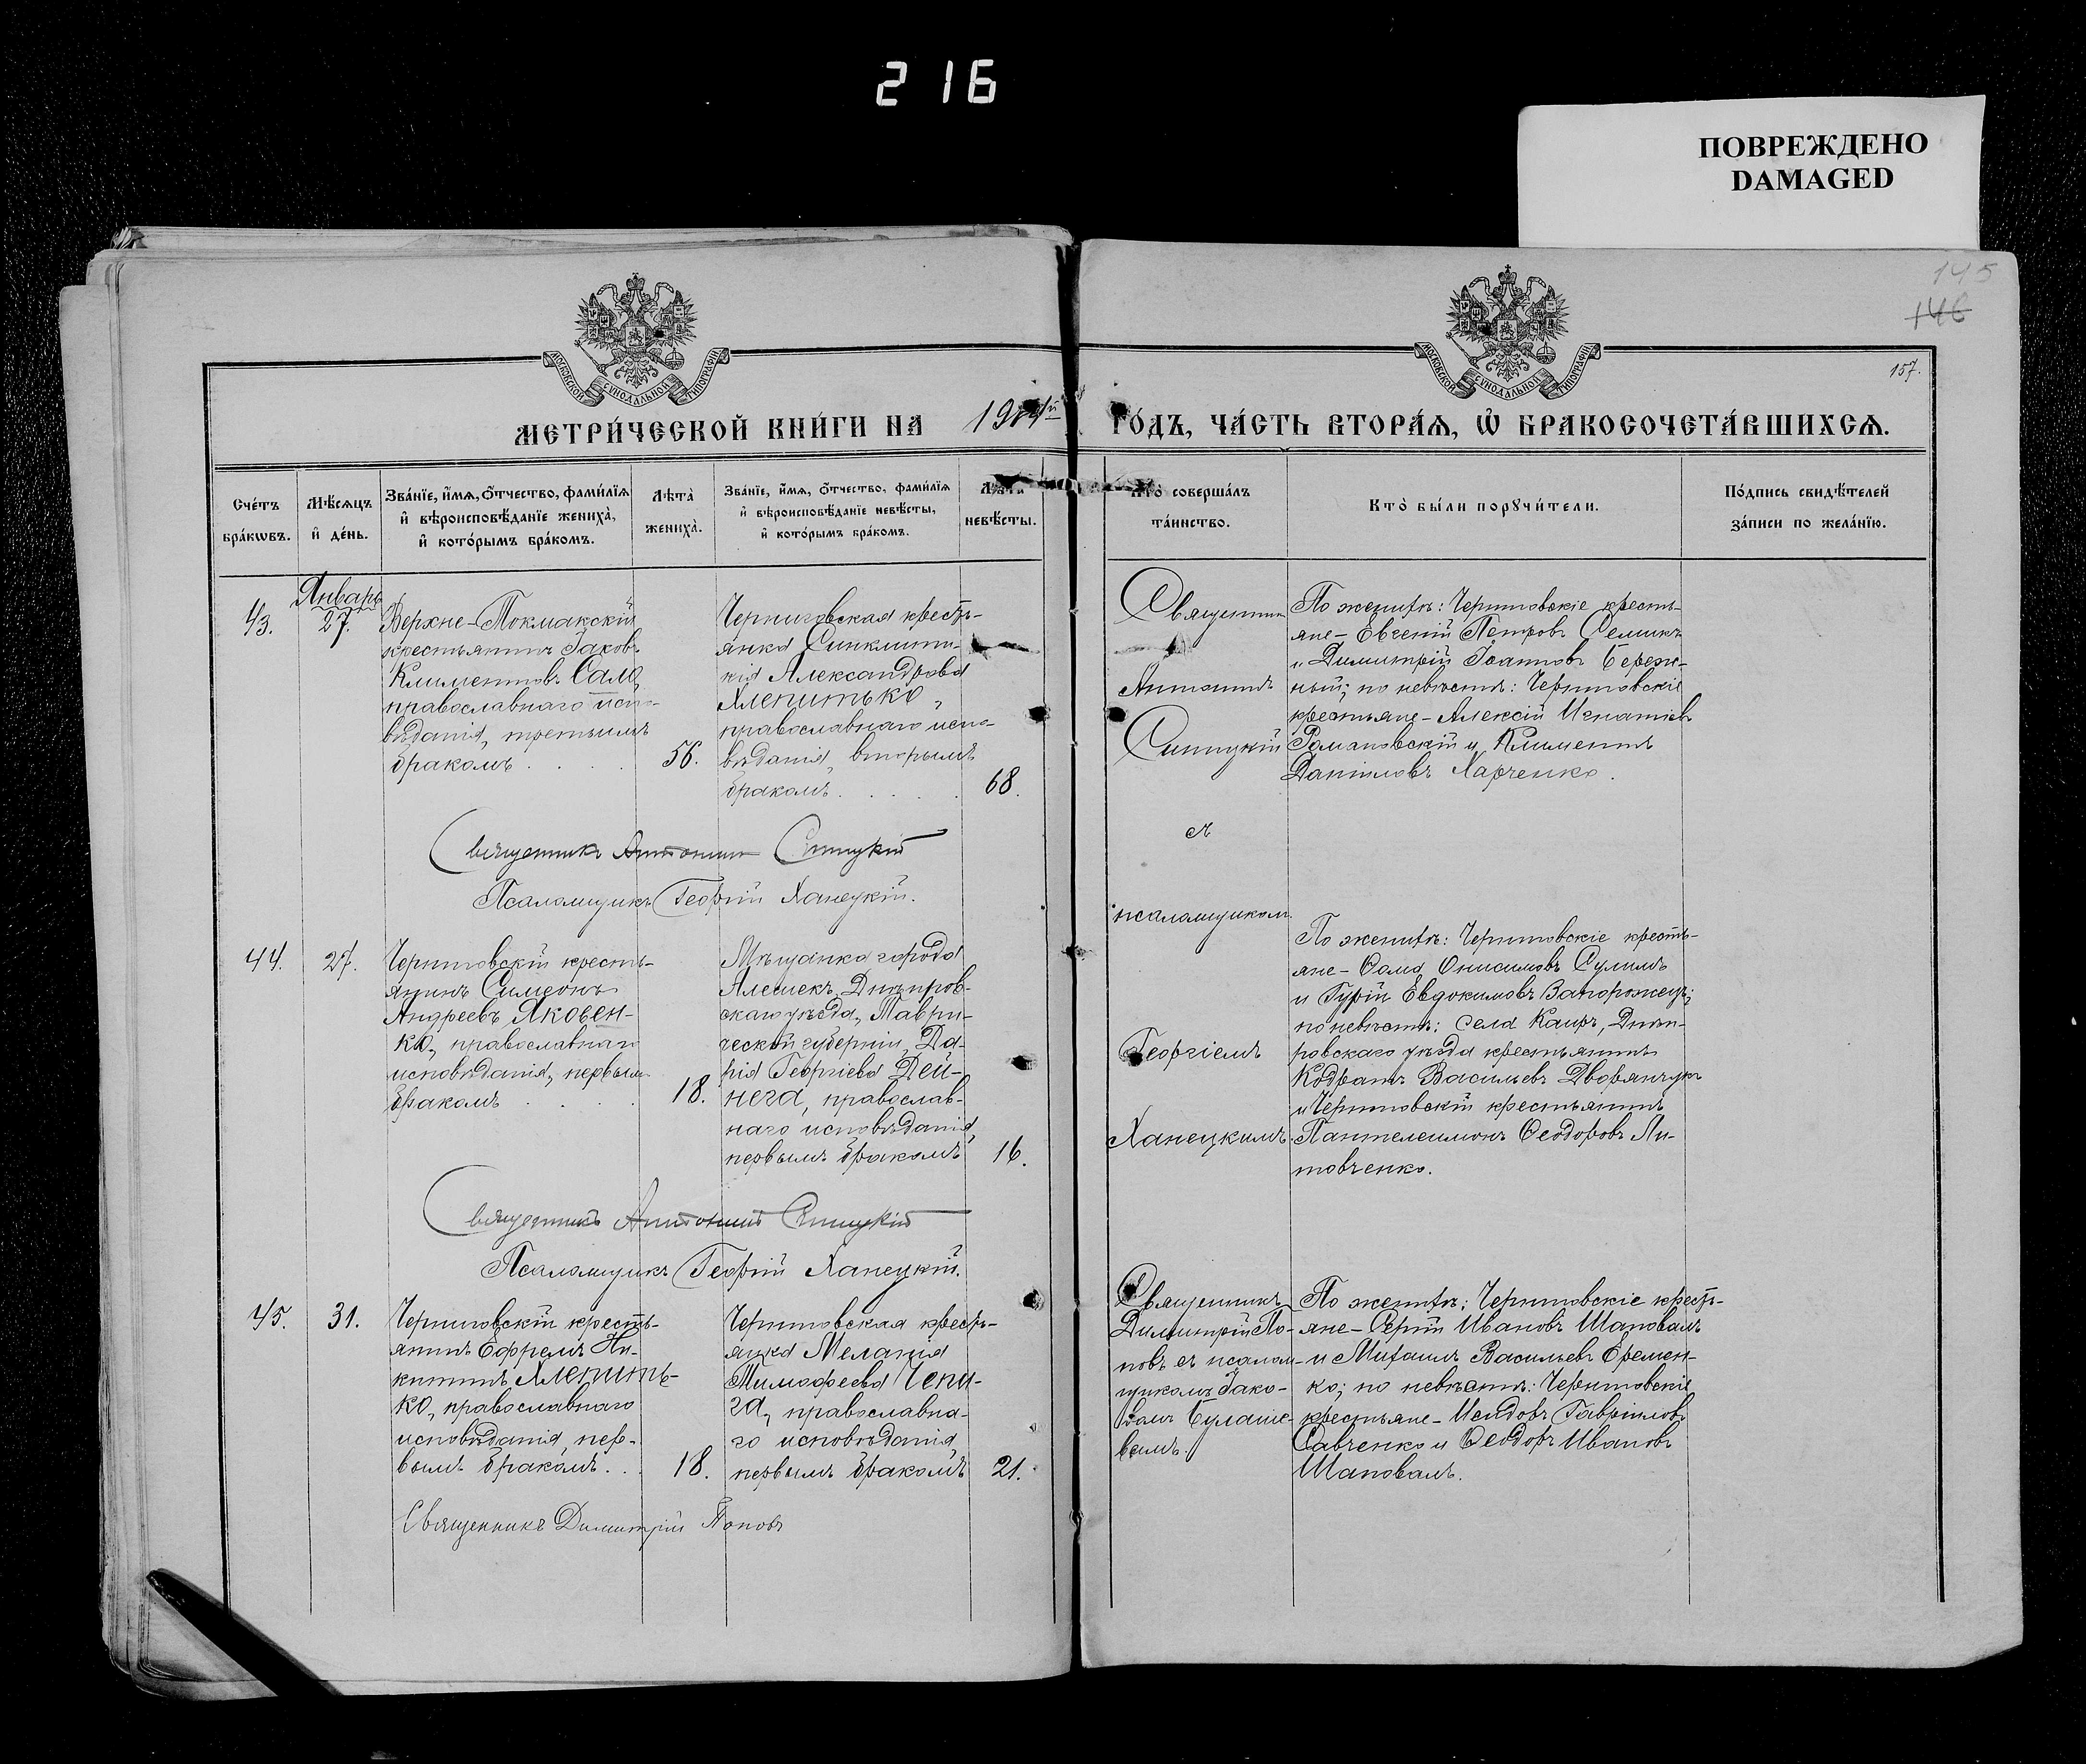 216
ПОВРЕЖДЕНО
DAMAGED
145
146
157.
МОСКОВСКОЙ СѴНОДАЛЬНОЙ ТИПОГРАФІИ
МОСКОВСКОЙ СѴНОДАЛЬНОЙ ТИПОГРАФІИ
МЕТРИ́ЧЕСКОЙ КНИ́ГИ НА
ГО́ДЪ, ЧА́СТЬ ВТОРА́Я, Ѡ҆ БРАКОСОЧЕТА́ВШИХСЯ.
Сче́тъ бра́кѡвъ.
Мѣ́сяцъ и҆ де́нь.
Зва́нїе, и҆́мя, ѻ҆́тчество, фами́лїя
и҆ вѣроисповѣ́данїе жениха̀,
и҆ кото́рымъ бра́комъ.
Лѣта̀ жениха̀.
Зва́нїе, и҆́мя, ѻ҆́тчество, фами́лїя
и҆ вѣроисповѣ́данїе невѣ́сты,
и҆ кото́рымъ бра́комъ.
Лѣта̀ невѣ́сты.
Кто̀ соверша́лъ та́инство.
Кто̀ бы́ли порꙋчи́тели.
По́дпись свидѣ́телей за́писи по жела́нїю.
Январь
43.
27.
Верхне-Токмакскій
крестьянинъ Іаковъ
Климентовъ Сало,
православнаго испо-
вѣданія, третьимъ
бракомъ . . . .
56.
Черниговская кресть-
янка Синклити-
кія Александрова
Хлепитько,
православнаго испо-
вѣданія, вторымъ
бракомъ . . . . .
68.
Священник
Антонинъ
Синицкій
съ
псаломщикомъ
Георгіемъ
Ханецкимъ.
По женихѣ: Черниговскіе кресть-
яне - Евгеній Петровъ Семикъ
и Димитрій Іоанновъ Береж-
ный; по невѣстѣ: Черниговскіе
крестьяне - Алексій Игнатіевъ
Романовскій и Климентъ
Даніиловъ Харченко.
Священникъ Антонинъ Синицкій
Псаломщикъ Георгій Ханецкій.
44.
27.
Черниговскій кресть-
янинъ Симеонъ
Андреевъ Яковен-
ко, православнаго
исповѣданія, первымъ
бракомъ . . . .
18.
Мѣщанка города
Алешекъ, Днѣпров-
скаго уѣзда, Таври-
ческой губерніи, Да-
рія Георгіева Дей-
нега, православ-
наго исповѣданія,
первымъ бракомъ
16.
По женихѣ: Черниговскіе кресть-
яне - Ѳома Онисимовъ Сулима
и Гурій Евдокимовъ Запорожецъ;
по невѣстѣ: села Каиръ, Днѣп-
ровскаго уѣзда крестьянинъ
Кодратъ Васильевъ Дворянчукъ
и Черниговскій крестьянинъ
Пантелеимонъ Ѳеодоровъ Ли-
товченко.
Священникъ Антонинъ Синицкій
Псаломщикъ Георгій Ханецкій.
45.
31.
Черниговскій кресть-
янинъ Ефремъ Ни-
китинъ Хлепить-
ко, православнаго
исповѣданія, пер-
вымъ бракомъ . .
18.
Черниговская кресть-
янка Меланія
Тимофеева Чепи-
га, православна-
го исповѣданія,
первымъ бракомъ
21.
Священникъ
Димитрій По-
повъ съ псалом-
щикомъ Іако-
вомъ Булаше-
вымъ.
По женихѣ: Черниговскіе кресть-
яне - Сергій Ивановъ Шаповалъ
и Михаилъ Васильевъ Еремен-
ко; по невѣстѣ: Черниговскіе
крестьяне - Исидоръ Гавріиловъ
Савченко и Ѳеодоръ Ивановъ
Шаповалъ.
Священникъ Димитрій Поповъ